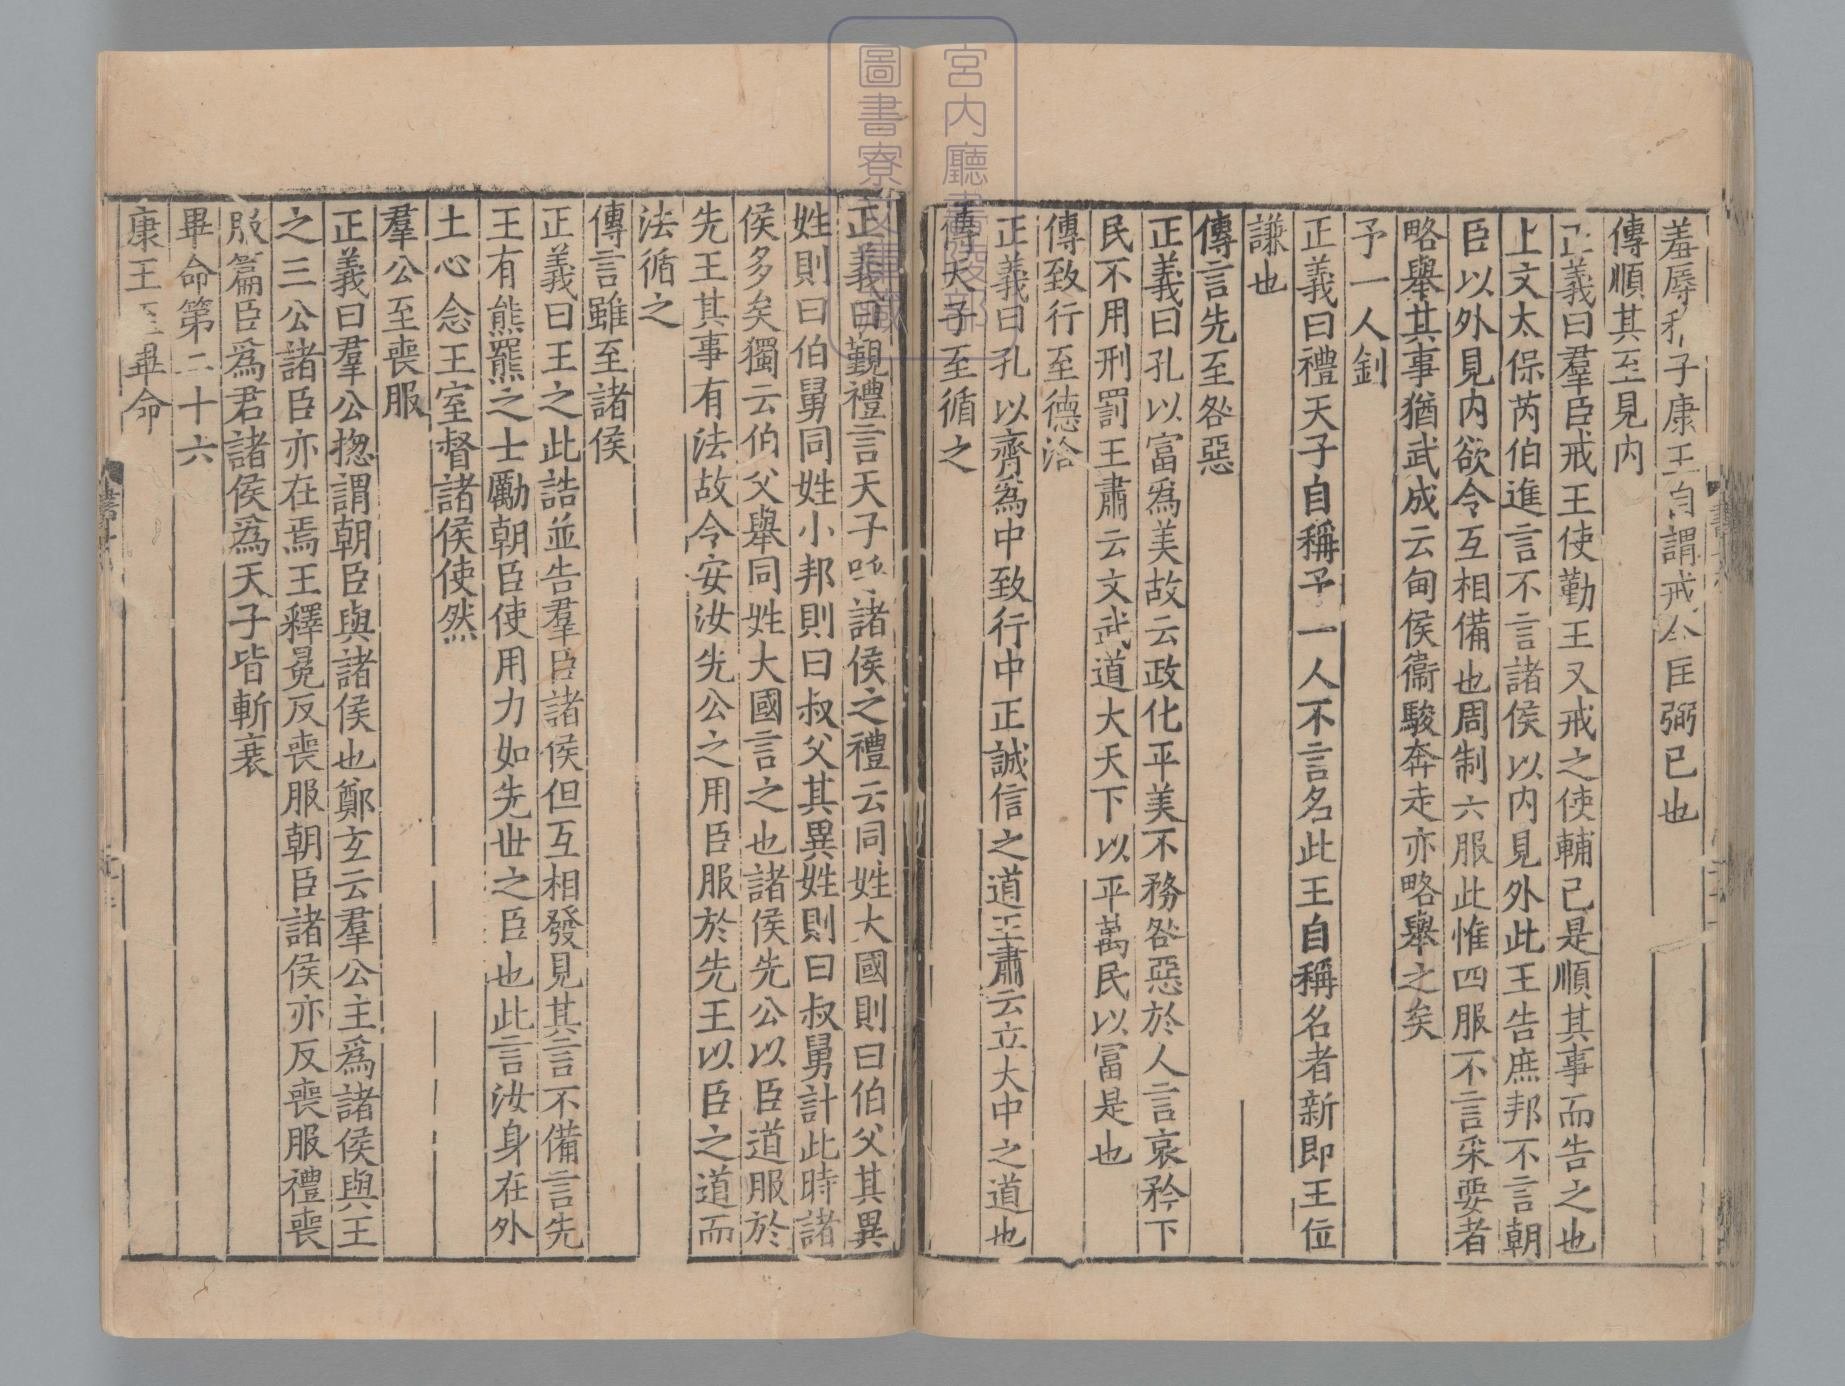 羞辱稚子康王自謂戒令匡弼已也
傳順其至見内
正義曰羣臣戒王使勤王又戒之使輔已是順其事而告之也
上文太保芮伯進言不言諸侯以内見外此王告庶邦不言朝
臣以外見内欲令互相備也周制六服此惟四服不言采要者
略舉其事猶武成云甸侯衞駿奔走亦略舉之矣
予一人釗
正義曰禮天子自稱予一人不言名此王自稱名者新即王位
謙也
傳言先至咎惡
正義曰孔以富爲美故云政化平美不務咎惡於人言哀矜下
民不用刑罰王肅云文武道大天下以平萬民以冨是也
傳致行至德洽
正義曰孔以齊爲中致行中正誠信之道王肅云立大中之道也
傳天子至循之
正義曰覲禮言天子呼諸侯之禮云同姓大國則曰伯父其異
姓則曰伯舅同姓小邦則曰叔父其異姓則曰叔舅計此時諸
侯多矣獨云伯父舉同姓大國言之也諸侯先公以臣道服於
先王其事有法故令安汝先公之用臣服於先王以臣之道而
法循之
傳言雖至諸侯
正義曰王之此誥並告羣臣諸侯但互相發見其言不備言先
王有熊羆之士勵朝臣使用力如先世之臣也此言汝身在外
土心念王室督諸侯使然
羣公至喪服
正義曰羣公揔謂朝臣與諸侯也鄭玄云羣公主爲諸侯與王
之三公諸臣亦在焉王釋冕反喪服朝臣諸侯亦反喪服禮喪
服篇臣爲君諸侯爲天子皆斬衰
畢命第二十六
康王至畢命
宮内廳書陵部
圖書寮文庫藏